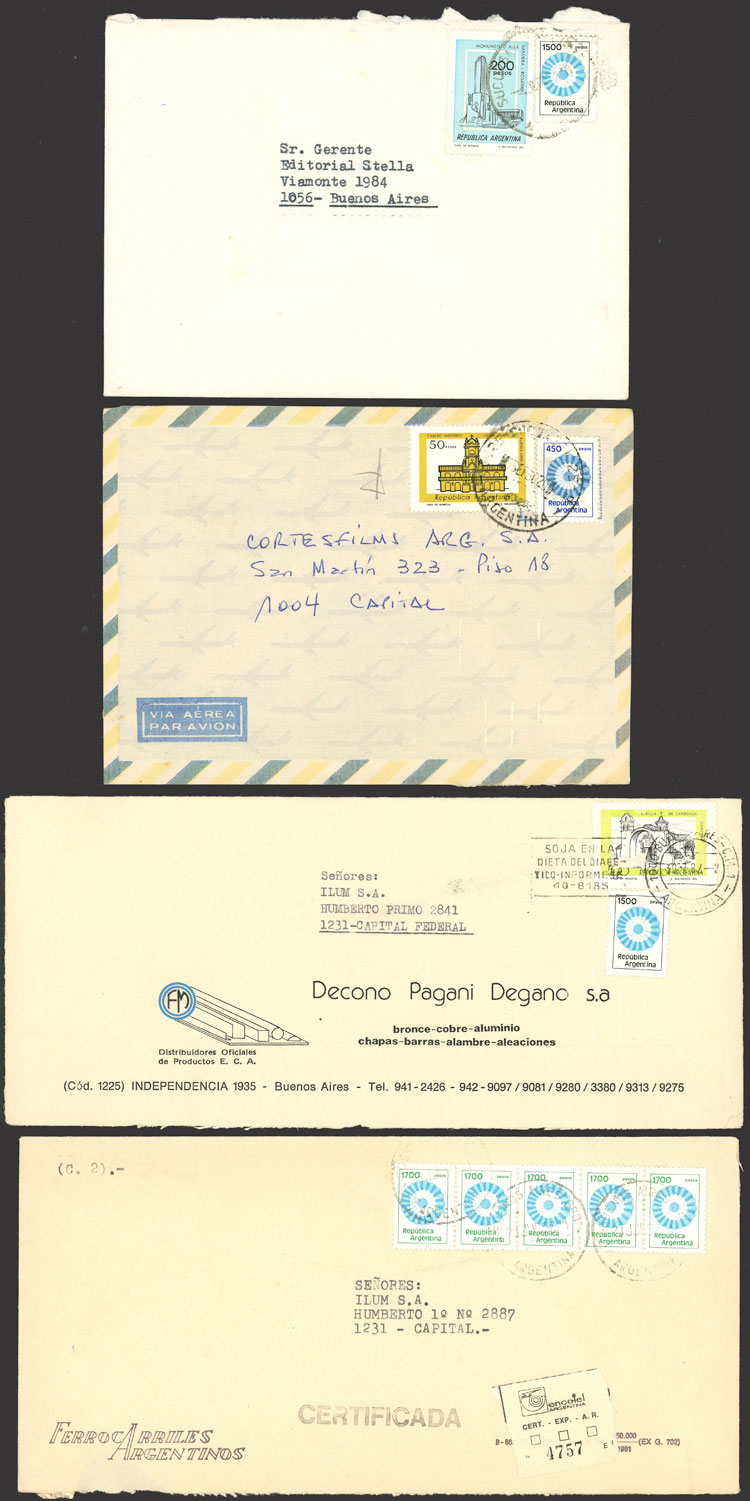 MONUMENTO A LA
BANDERA - ROSARIO
200
PESOS
REPUBLICA ARGENTINA
1500 pesos
República
Argentina
Sr. Gerente
Editorial Stella
Viamonte 1984
1056- Buenos Aires
50 PESOS
República Argentina
450 pesos
República
Argentina
ARGENTINA
CORTESFILMS ARG. S.A.
San Martín 323 - Piso 18
1004 CAPITAL
VIA AÉREA
PAR AVION
SOJA EN LA
DIETA DEL DIABE-
TICO-INFORMES
40-8185
REPUBLICA ARGENTINA
ARGENTINA
1500 pesos
República
Argentina
Señores:
ILUM S.A.
HUMBERTO PRIMO 2841
1231-CAPITAL FEDERAL
FM
Distribuidores Oficiales
de Productos E. C. A.
Decono Pagani Degano s.a
bronce-cobre-aluminio
chapas-barras-alambre-aleaciones
(Cód. 1225) INDEPENDENCIA 1935 - Buenos Aires - Tel. 941-2426 - 942-9097 / 9081 / 9280 / 3380 / 9313 / 9275
(C. 2).-
1700 pesos 1700 pesos 1700 pesos 1700 pesos 1700 pesos
República República República República República
Argentina Argentina Argentina Argentina Argentina
ARGENTINA ARGENTINA
SEÑORES:
ILUM S.A.
HUMBERTO 1º Nº 2887
1231 - CAPITAL.-
CERTIFICADA
FERROCARRILES
ARGENTINOS
encotel
ARGENTINA
CERT. - EXP. - A. R.
4757
(EX G. 702)
1981